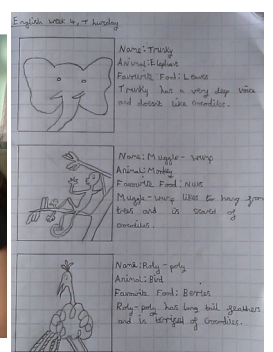 English week 4, Thursday
Name: Trunky
Animal: Elephant
Favourite Food: Leaves
Trunky has a very deep voice
and doesnt like crocodiles.
Name: Muggle-wump
Animal: Monkey
Favourite Food: Nuts
Muggle-wump likes to hang from
trees and is scared of
crocodiles.
Name: Roly-poly
Animal: Bird
Favourite Food: Berries
Roly-poly has long tail feathers
and is terrified of crocodiles.